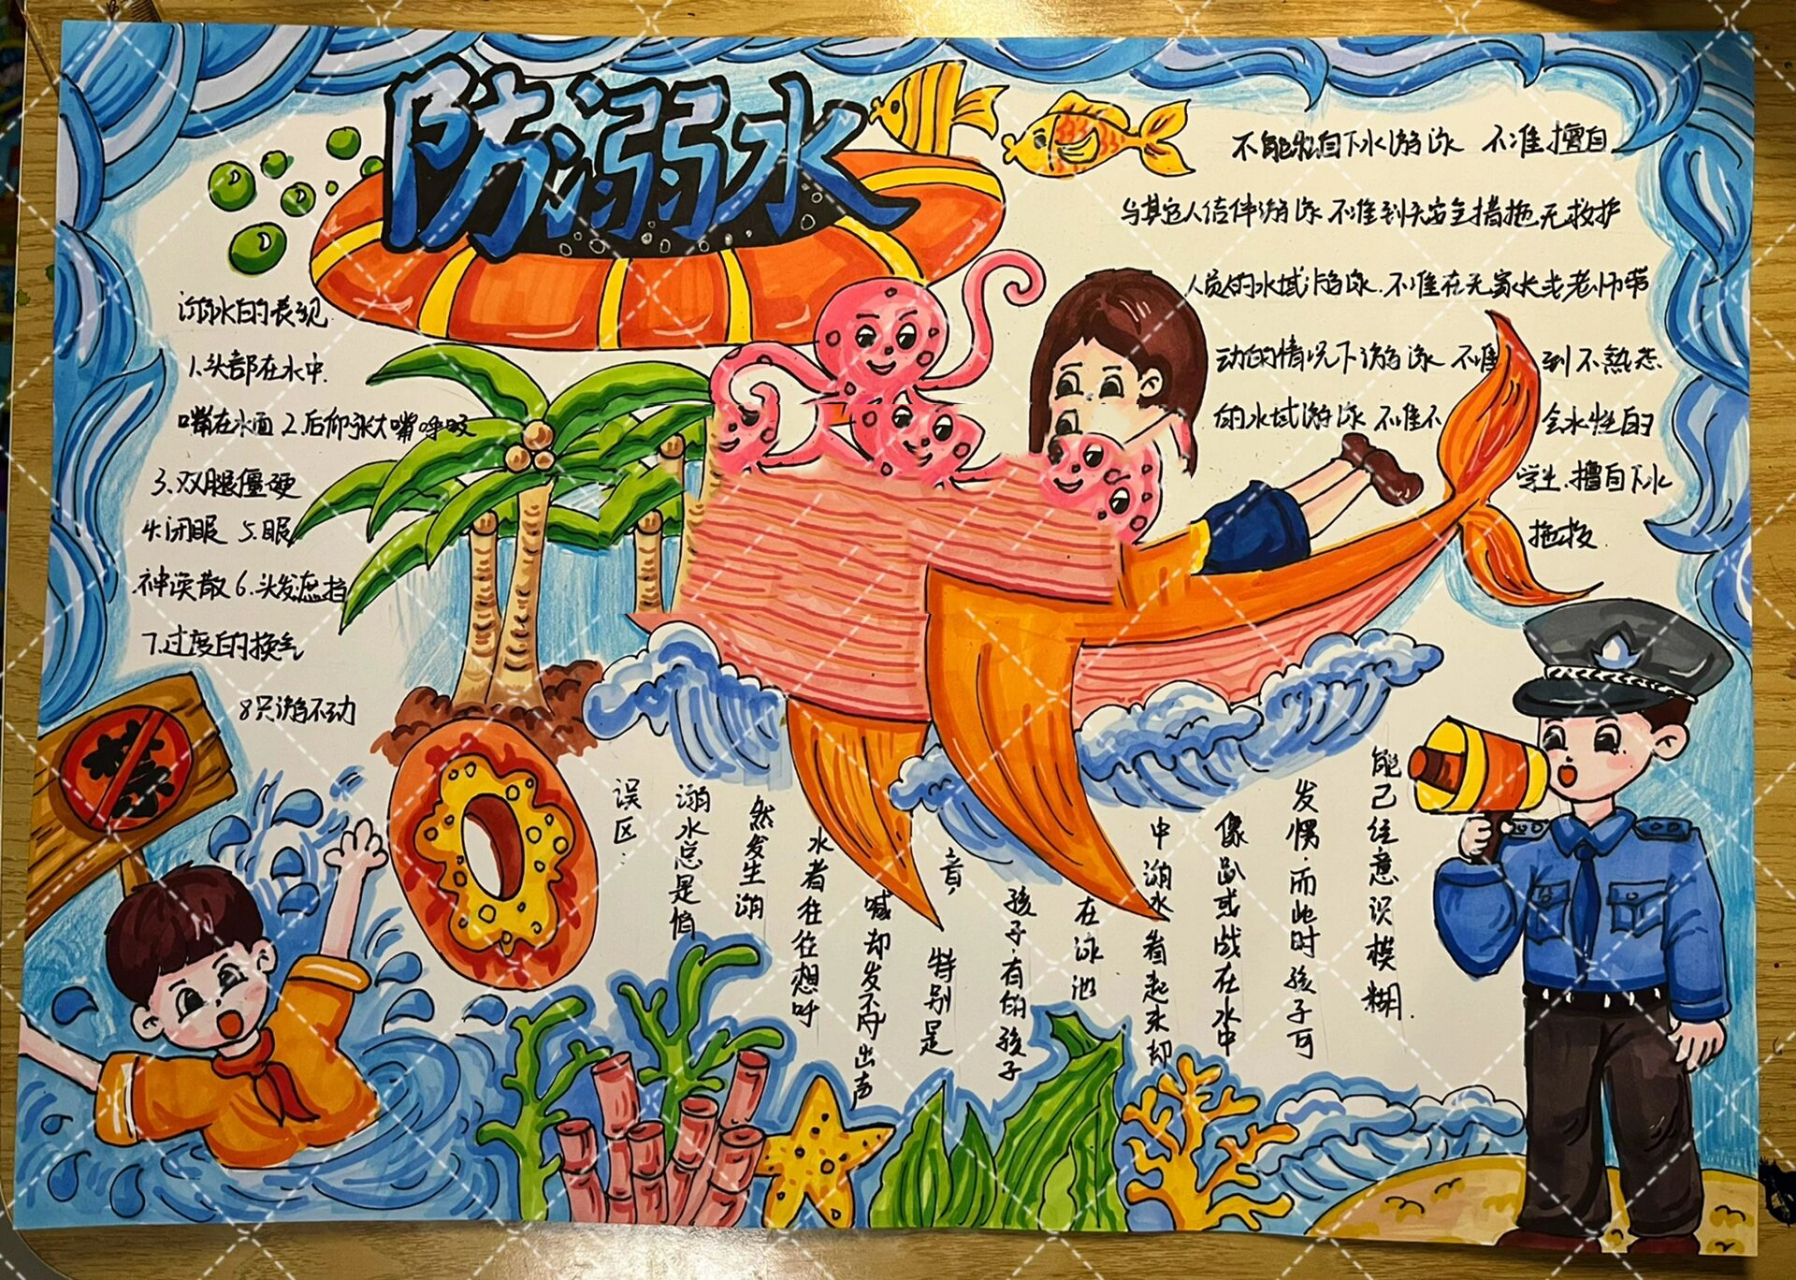 防溺水
不能私自下水游泳 不准擅自
与其它人结伴游泳 不准到无安全措施、无救护
人员的水域游泳. 不准在无家长或老师带
动的情况下游泳 不准到不熟悉
的水域游泳 不准不会水性的
学生.擅自下水
施救.
溺水的表现
1.头部在水中.
嘴在水面 2.后仰张大嘴呼吸
3.双腿僵硬
4.闭眼 5.眼
神涣散 6.头发遮挡
7.过度的换气
8只游不动
禁
误区.
溺水总是悄
然发生溺
水者往往想呼
喊却发不出声
音 特别是
孩子有的孩子
在泳池
中溺水看起来却
像趴或战在水中
发愣.而此时孩子可
能己经意识模糊.